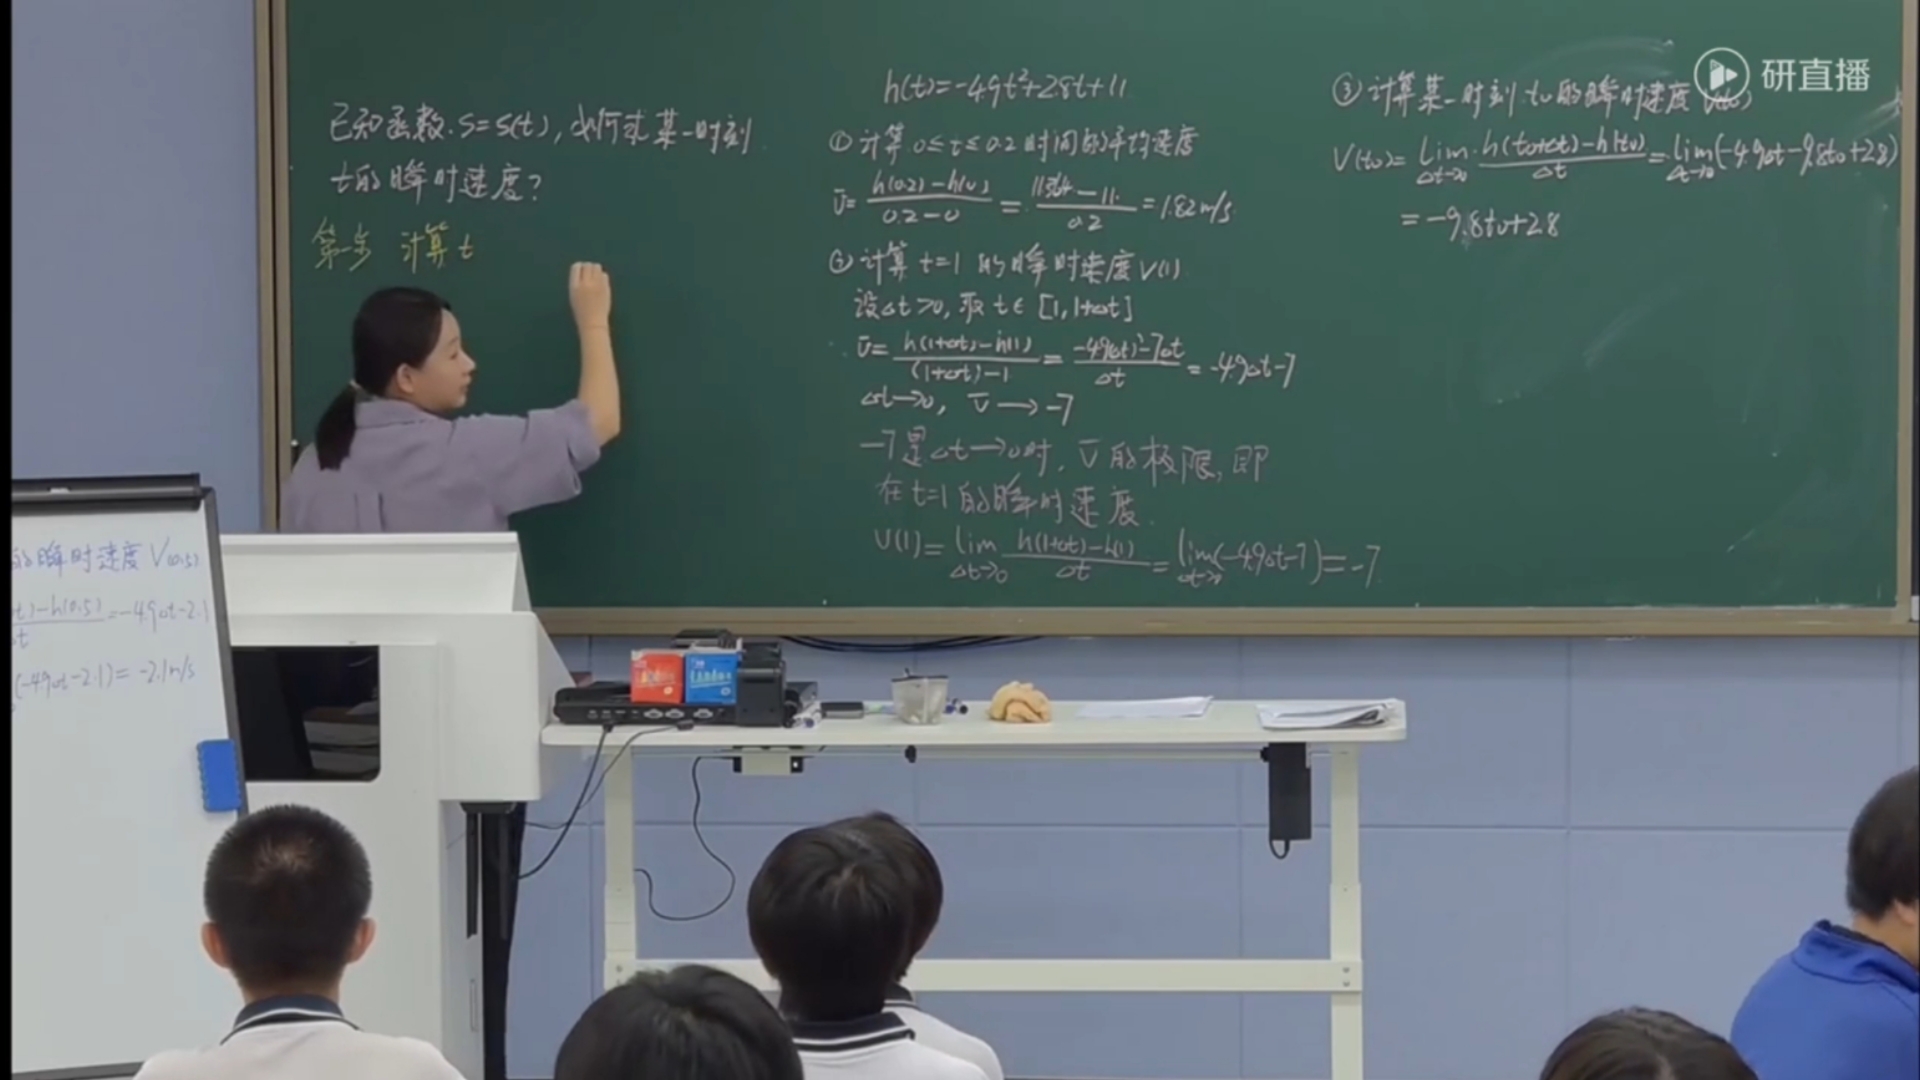 已知函数.S=S(t),如何求某一时刻
t的瞬时速度?
第一步 计算t
h(t)=-4.9t²+2.8t+11
① 计算 0≤t≤0.2时间的平均速度
v̄= (h(0.2)-h(0))/(0.2-0) = (11.364-11)/0.2 = 1.82m/s
② 计算 t=1 的瞬时速度V(1)
设Δt>0,取 t∈[1,1+Δt]
v̄= (h(1+Δt)-h(1))/((1+Δt)-1) = (-4.9(Δt)²-7Δt)/Δt = -4.9Δt-7
Δt→0, v̄→-7
-7是Δt→0时,v̄的极限,即
在t=1的瞬时速度.
V(1)= lim_{Δt→0} (h(1+Δt)-h(1))/Δt = lim_{Δt→0}(-4.9Δt-7)=-7
③计算某一时刻t₀的瞬时速度V(t₀)
V(t₀)= lim_{Δt→0} (h(t₀+Δt)-h(t₀))/Δt = lim_{Δt→0}(-4.9Δt-9.8t₀+2.8)
=-9.8t₀+2.8
研直播
的瞬时速度V(0.5)
t)-h(0.5) =-4.9Δt-2.1
Δt
(-4.9Δt-2.1)=-2.1m/s